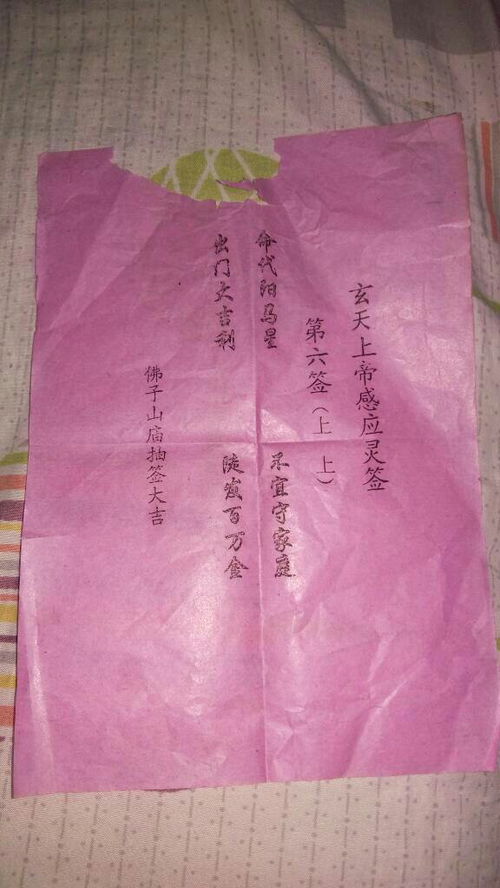 玄天上帝感应灵签
第六签（上上）
命代阳马星
不宜守家庭
出门大吉利
陡嵗百万金
佛子山庙抽签大吉